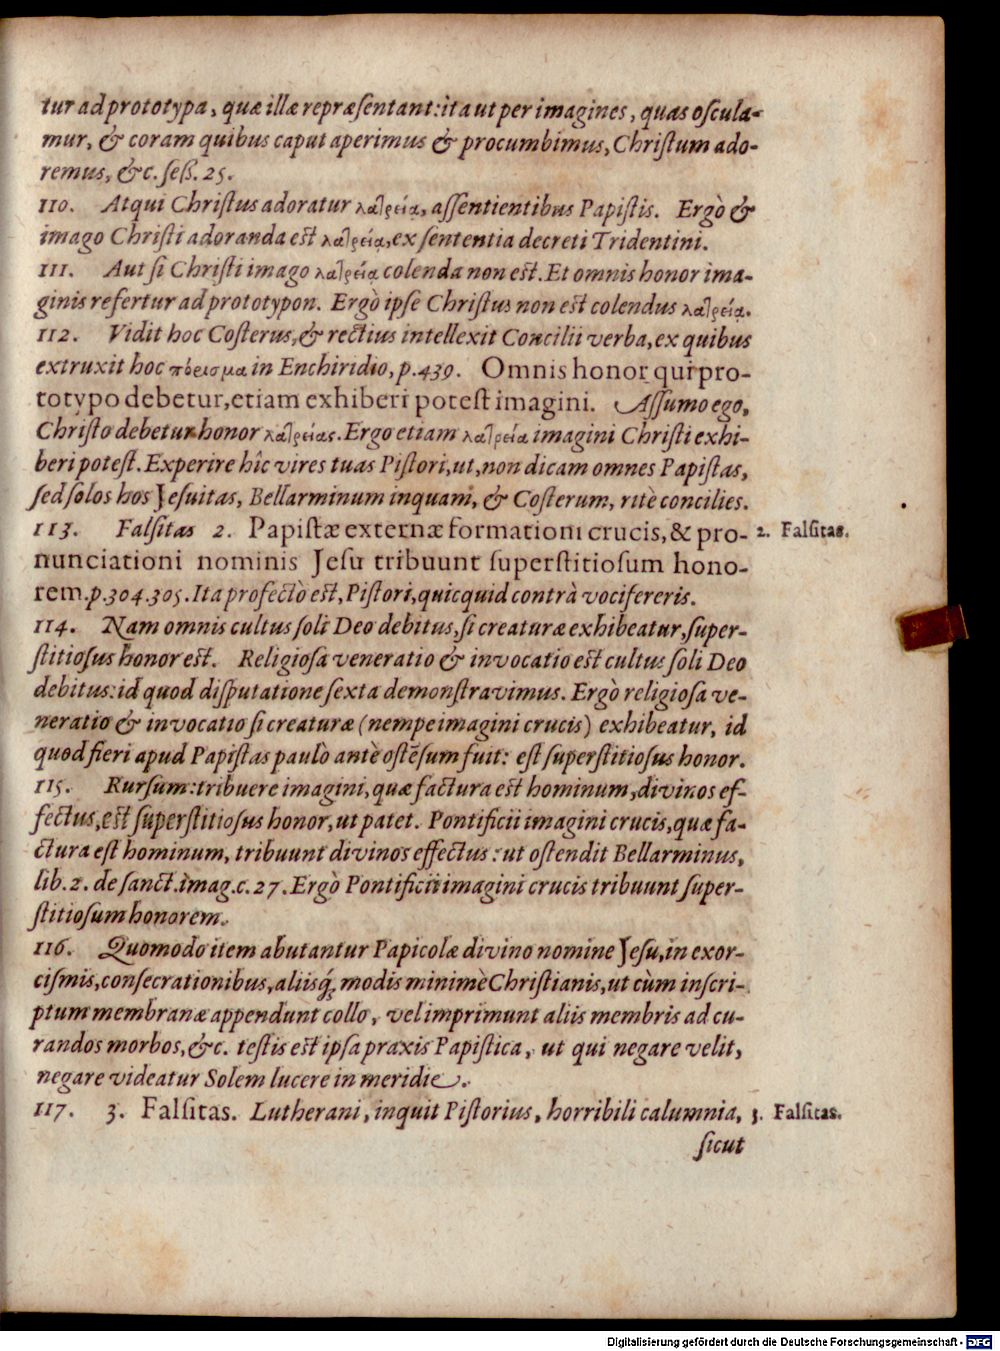 tur ad prototypa, quæ illæ repræſentant: ita ut per imagines, quas oſcula-
mur, & coram quibus caput aperimus & procumbimus, Chriſtum ado-
remus, &c. ſeß. 25.
110. Atqui Chriſtus adoratur λατρείᾳ, aſſentientibus Papiſtis. Ergò &
imago Chriſti adoranda eſt λατρείᾳ, ex ſententia decreti Tridentini.
111. Aut ſi Chriſti imago λατρείᾳ colenda non eſt. Et omnis honor ima-
ginis refertur ad prototypon. Ergò ipſe Chriſtus non eſt colendus λατρείᾳ.
112. Vidit hoc Coſterus, & rectius intellexit Concilii verba, ex quibus
extruxit hoc πόεισμα in Enchiridio, p. 439. Omnis honor qui pro-
totypo debetur, etiam exhiberi poteſt imagini. Aſſumo ego,
Chriſto debetur honor λατρείας. Ergo etiam λατρεία imagini Chriſti exhi-
beri poteſt. Experire hîc vires tuas Piſtori, ut, non dicam omnes Papiſtas,
ſed ſolos hos Jeſuitas, Bellarminum inquam, & Coſterum, ritè concilies.
113. Falſitas 2. Papiſtæ externæ formationi crucis, & pro- 2. Falſitas.
nunciationi nominis Jeſu tribuunt ſuperſtitioſum hono-
rem. p. 304. 305. Ita profectò eſt, Piſtori, quicquid contrà vocifereris.
114. Nam omnis cultus ſoli Deo debitus, ſi creaturæ exhibeatur, ſuper-
ſtitioſus honor eſt. Religioſa veneratio & invocatio eſt cultus ſoli Deo
debitus: id quod diſputatione ſexta demonſtravimus. Ergò religioſa ve-
neratio & invocatio ſi creaturæ (nempe imagini crucis) exhibeatur, id
quod fieri apud Papiſtas paulò antè oſtẽſum fuit: eſt ſuperſtitioſus honor.
115. Rurſum: tribuere imagini, quæ factura eſt hominum, divinos ef-
fectus, eſt ſuperſtitioſus honor, ut patet. Pontificii imagini crucis, quæ fa-
ctura eſt hominum, tribuunt divinos effectus: ut oſtendit Bellarminus,
lib. 2. de ſanct. imag. c. 27. Ergò Pontificii imagini crucis tribuunt ſuper-
ſtitioſum honorem.
116. Quomodo item abutantur Papicolæ divino nomine Jeſu, in exor-
ciſmis, conſecrationibus, aliisq́; modis minimè Chriſtianis, ut cùm inſcri-
ptum membranæ appendunt collo, vel imprimunt aliis membris ad cu-
randos morbos, &c. teſtis eſt ipſa praxis Papiſtica, ut qui negare velit,
negare videatur Solem lucere in meridie.
117. 3. Falſitas. Lutherani, inquit Piſtorius, horribili calumnia, 3. Falſitas.
ſicut
Digitalisierung gefördert durch die Deutsche Forschungsgemeinschaft - DFG